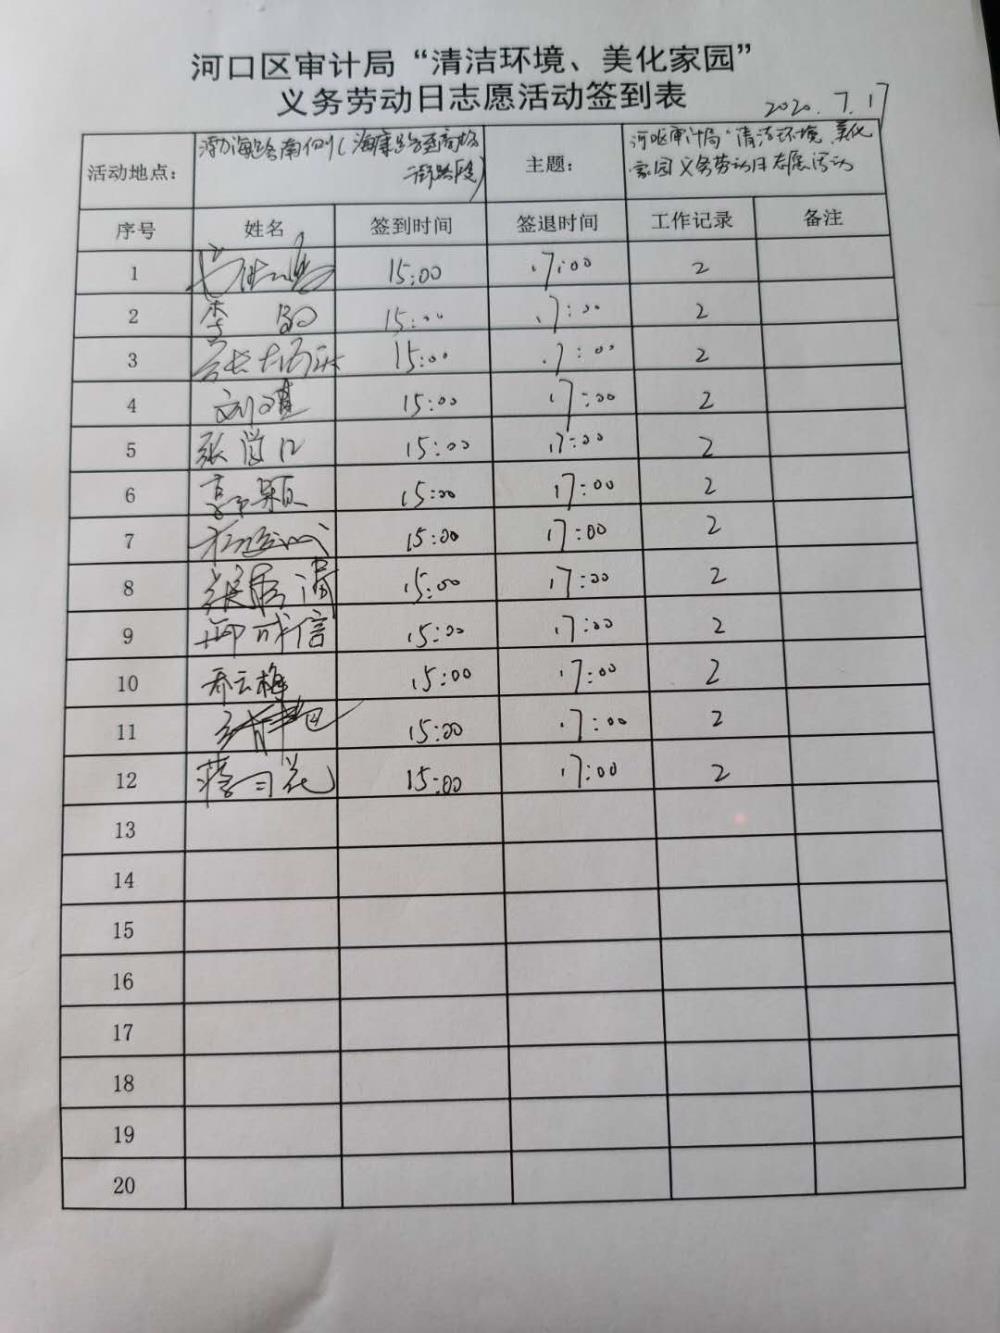 河口区审计局“清洁环境、美化家园”
义务劳动日志愿活动签到表
2020.7.17
活动地点： 渤海路南侧( 海康路至商场 主题： 河口区审计局“清洁环境、美化
街路段) 家园义务劳动日志愿活动
序号 姓名 签到时间 签退时间 工作记录 备注
1 15:00 17:00 2
2 李 15:00 17:00 2
3 15:00 17:00 2
4 15:00 17:00 2
5 张 15:00 17:00 2
6 颖 15:00 17:00 2
7 15:00 17:00 2
8 15:00 17:00 2
9 成信 15:00 17:00 2
10 乔云梅 15:00 17:00 2
11 15:00 17:00 2
12 蒋 花 15:00 17:00 2
13
14
15
16
17
18
19
20